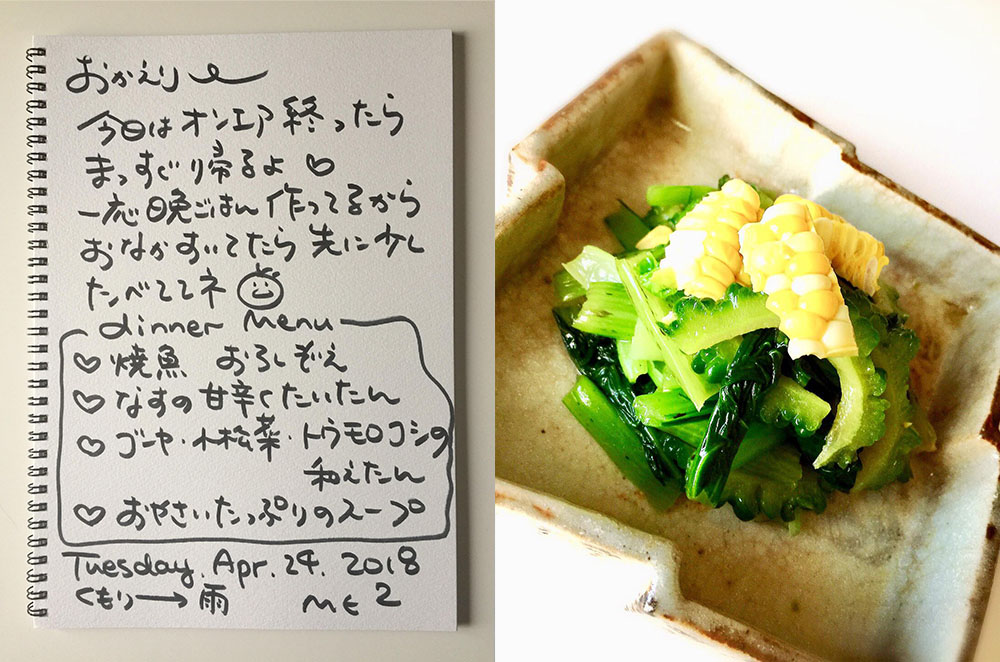 おかえり
今日はオンエア終ったら
まっすぐり帰るよ♡
一応晩ごはん作ってるから
おなかすいてたら先に少し
たべててネ
dinner menu
♡焼魚 おろしぞえ
♡なすの甘辛くたいたん
♡ゴーヤ・小松菜・トウモロコシの
和えたん
♡おやさいたっぷりのスープ
Tuesday. Apr. 24. 2018
くもり→雨 ME2